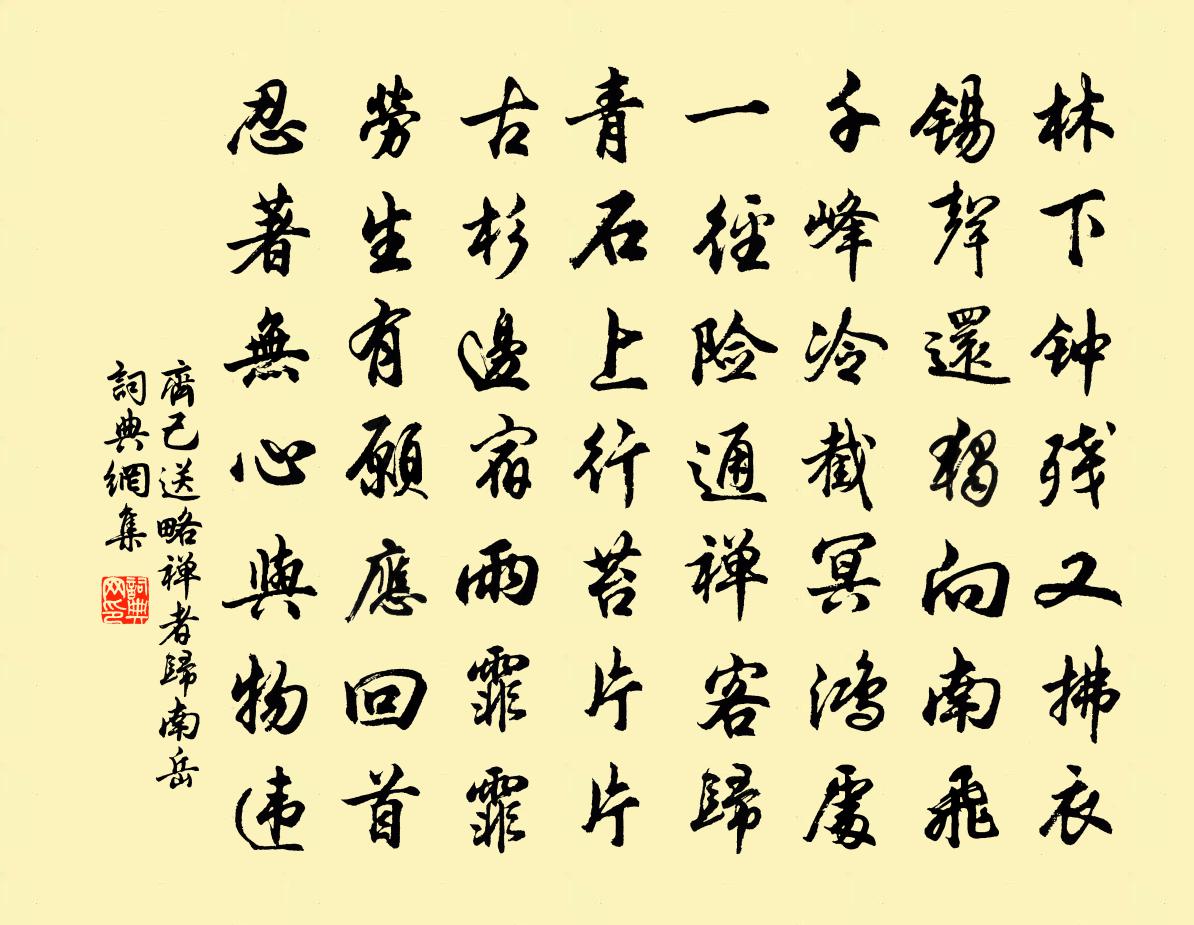 林下钟残又拂衣
锡聲還獨向南飛
千峰冷截冥鴻處
一徑险通禅客歸
青石上行苔片片
古杉邊宿雨霏霏
勞生有願應回首
忍著無心與物违
齊己送略禅者歸南岳
詞典網集
詞典网印